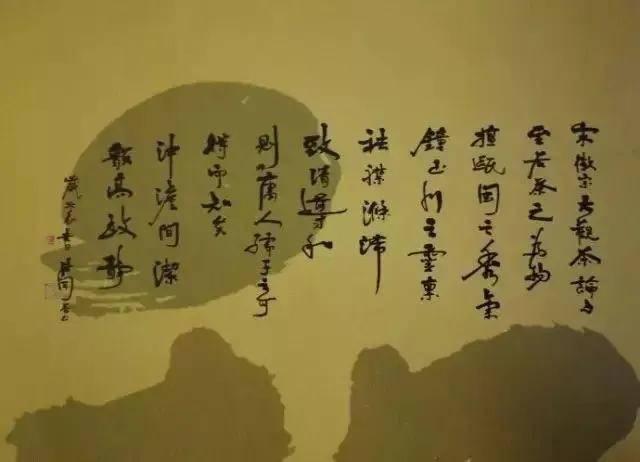 宋徽宗大觀茶論曰
至若茶之為物
擅甌閩之秀氣
鍾山川之靈稟
祛襟滌滯
致清導和
則非庸人孺子之可
得而知矣
沖澹間潔
韻高致靜
歲